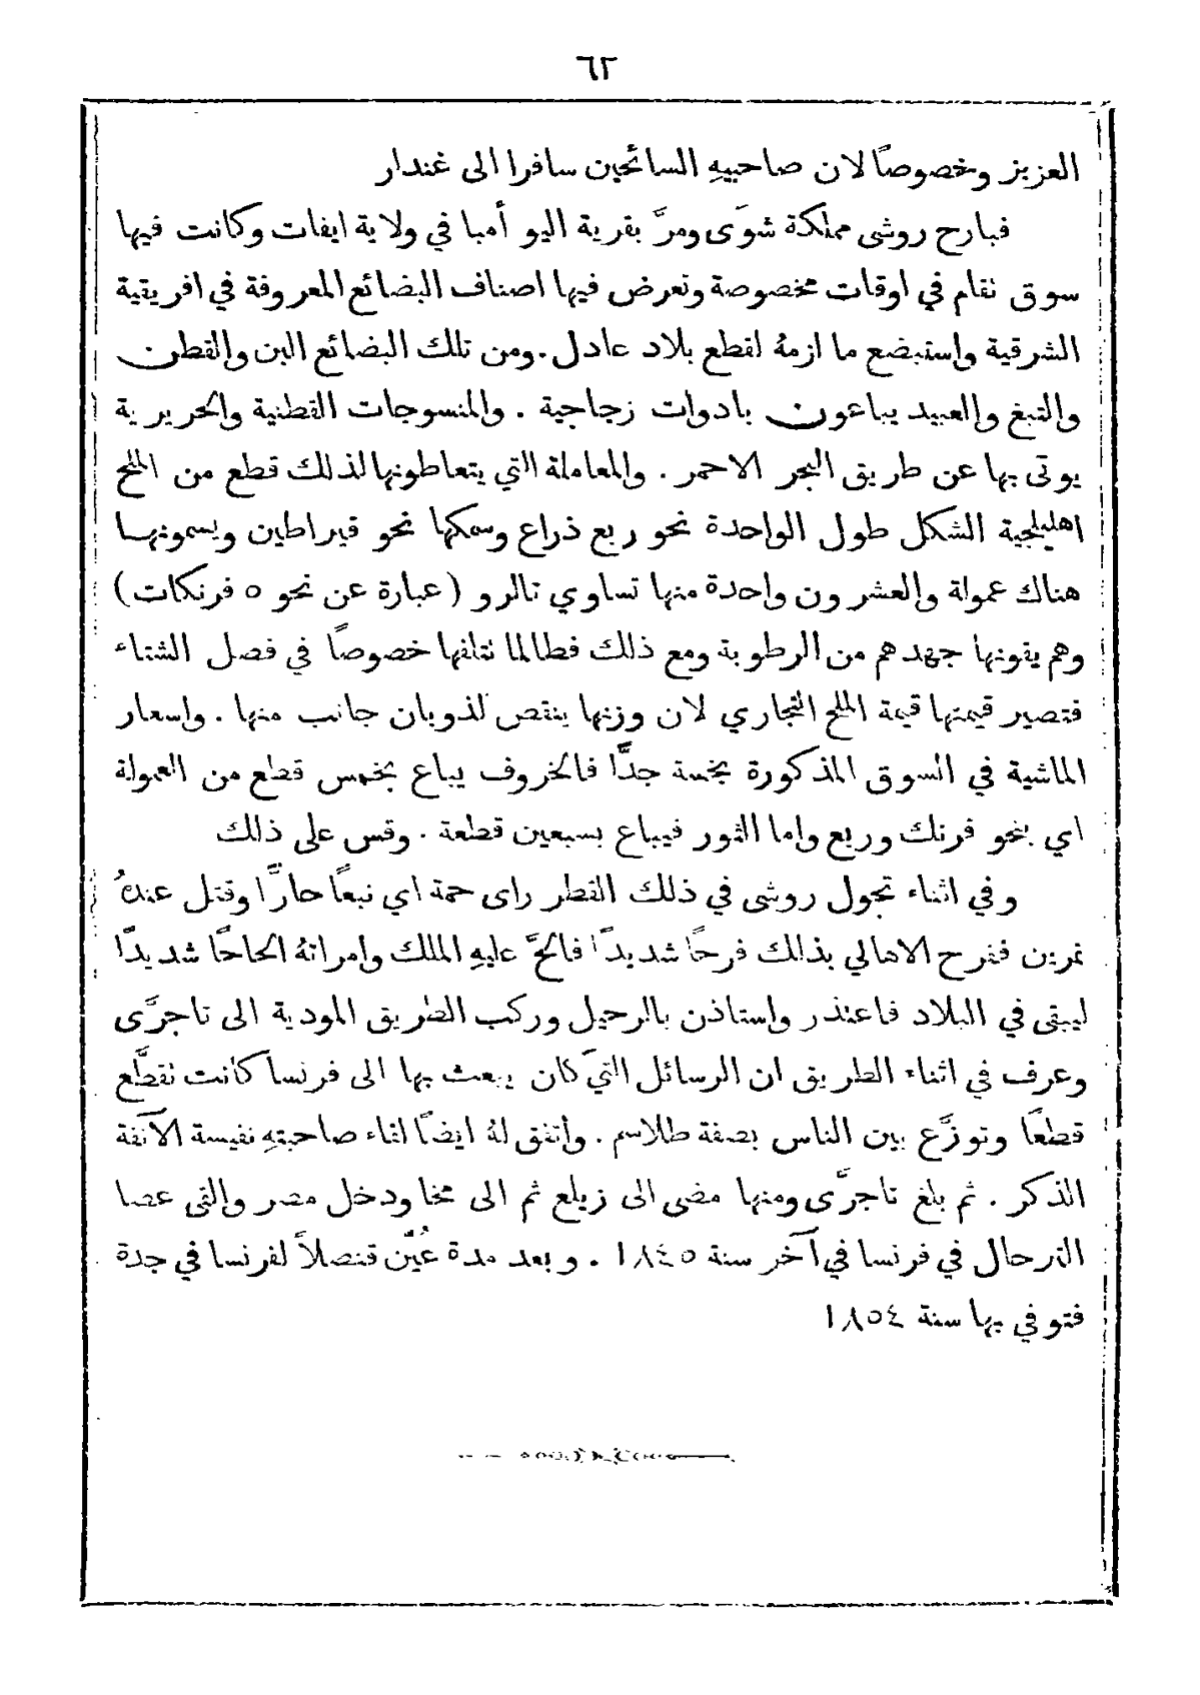 ٦٢
العزيز وخصوصًا لان صاحبيهِ السائحين سافرا الى غندار
فبارح روشى مملكة شوَى ومرَّ بقرية اليو أمبا في ولاية ايفات وكانت فيها
سوق نقام في اوقات مخصوصة وتعرض فيها اصناف البضائع المعروفة في افريقية
الشرقية واستبضع ما لزمهُ لقطع بلاد عادل. ومن تلك البضائع البن والقطن
والتبغ والعبيد يباعون بادوات زجاجية . والمنسوجات القطنية والحريرية
يوتى بها عن طريق البحر الاحمر . والمعاملة التي يتعاطونها لذلك قطع من الملح
اهليلجية الشكل طول الواحدة نحو ربع ذراع وسمكها نحو قيراطين ويسمونها
هناك عمولة والعشرون واحدة منها تساوي تالرو (عبارة عن نحو ٥ فرنكات)
وهم يقونها جهدهم من الرطوبة ومع ذلك فطالما نتلفها خصوصًا في فصل الشتاء
فتصير قيمتها قيمة الملح التجاري لان وزنها ينقص لذوبان جانب منها . واسعار
الماشية في السوق المذكورة بخسة جدًّا فالخروف يباع بخمس قطع من العمولة
اي بنحو فرنك وربع واما الثور فيباع بسبعين قطعة . وقس على ذلك
وفي اثناء تجول روشى في ذلك القطر راى حمة اي نبعًا حارًّا وقتل عندهُ
نمرين ففرح الاهالي بذلك فرحًا شديدًا فالحَّ عليهِ الملك وامراتهُ الحاحًا شديدًا
ليبقى في البلاد فاعتذر واستاذن بالرحيل وركب الطريق المودية الى تاجرَّى
وعرف في اثناء الطريق ان الرسائل التي كان يبعث بها الى فرنسا كانت نقطَّع
قطعًا وتوزَّع بين الناس بصفة طلاسم . واتفق لهُ ايضًا لقاء صاحبتهِ نفيسة الآنفة
الذكر . ثم بلغ تاجرَّى ومنها مضى الى زيلع ثم الى مخا ودخل مصر والقى عصا
الترحال في فرنسا في آخر سنة ١٨٤٥ . وبعد مدة عُيّن قنصلاً لفرنسا في جدة
فتوفي بها سنة ١٨٥٤